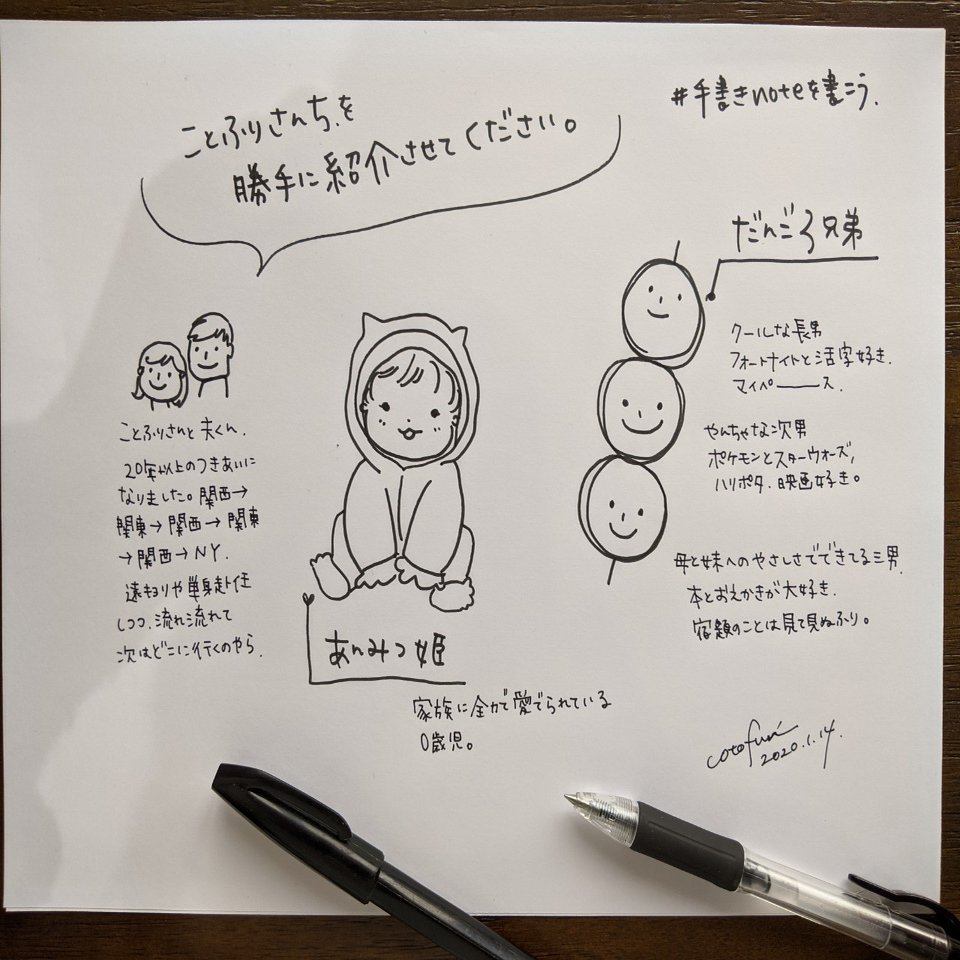 #手書きnoteを書こう.
ことふりさんちを
勝手に紹介させてください。
ことふりさんと夫くん.
20年以上のつきあいに
なりました。関西→
関東→関西→関東
→関西→NY.
遠キョリや単身赴任
しつつ、流れ流れて
次はどこに行くのやら.
あんみつ姫
家族に全力で愛でられている
0歳児。
だんご3兄弟
クールな長男
フォートナイトと活字好き.
マイペーース.
やんちゃな次男
ポケモンとスターウォーズ,
ハリポタ、映画好き。
母と妹へのやさしさでできてる三男.
本とおえかきが大好き.
宿題のことは見て見ぬふり。
cotofuri
2020.1.14.